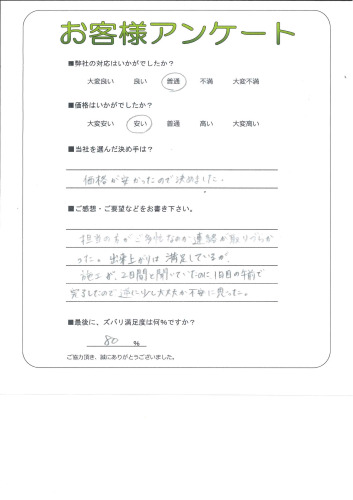 お客様アンケート
■弊社の対応はいかがでしたか？
大変良い 良い 普通 不満 大変不満
■価格はいかがでしたか？
大変安い 安い 普通 高い 大変高い
■当社を選んだ決め手は？
価格が安かったので決めました。
■ご感想・ご要望などをお書き下さい。
担当の方がご多忙なのか連絡が取りづらか
った。出来上がりは満足しているが、
施工が、2日間と聞いていたのに1日目の午前で
完了したので逆に少し大丈夫か不安に思った。
■最後に、ズバリ満足度は何%ですか？
80 %
ご協力頂き、誠にありがとうございました。